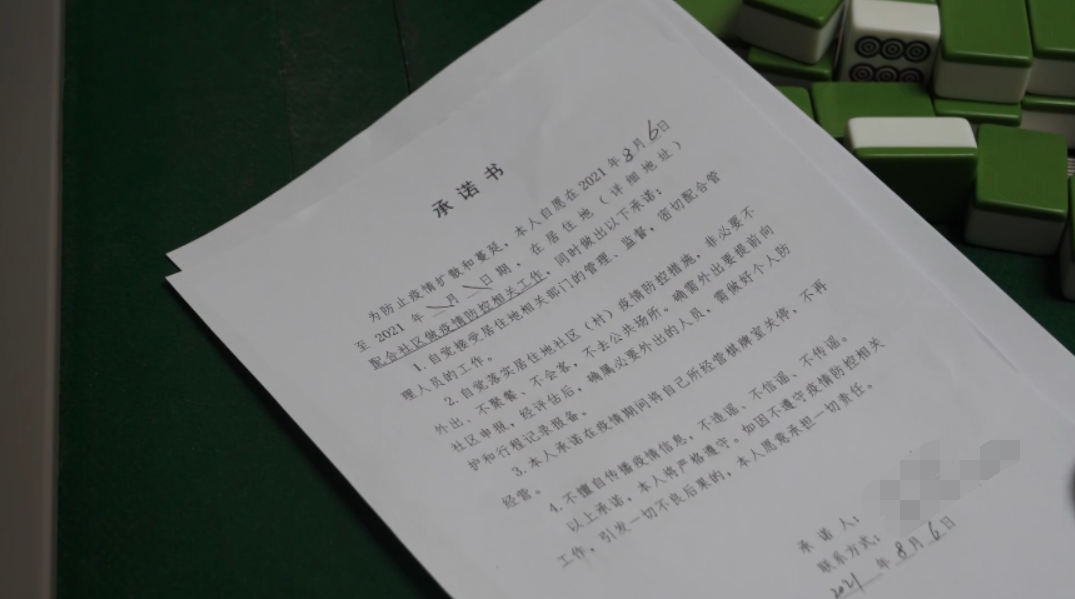 承诺书
为防止疫情扩散和蔓延，本人自愿在2021年8月6日
至2021年 月 日期，在居住地（详细地址）
配合社区做疫情防控相关工作，同时做出以下承诺：
1.自觉接受居住地相关部门的管理、监督，密切配合管
理人员的工作。
2.自觉落实居住地社区（村）疫情防控措施，非必要不
外出、不聚餐、不会客，不去公共场所。确需外出要提前向
社区申报，经评估后，确属必要外出的人员，需做好个人防
护和行程记录报备。
3.本人承诺在疫情期间将自己所经营棋牌室关停，不再
经营。
4.不擅自传播疫情信息，不造谣、不信谣、不传谣。
以上承诺，本人将严格遵守。如因不遵守疫情防控相关
工作，引发一切不良后果的，本人愿意承担一切责任。
承诺人：
联系方式：
2021年8月6日